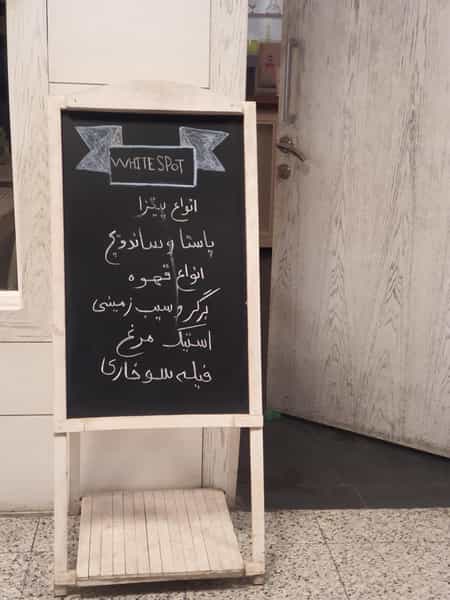 WHITE SPOT
انواع پیتزا
پاستا و ساندویچ
انواع قهوه
برگر و سیب زمینی
استیک مرغ
فیله سوخاری